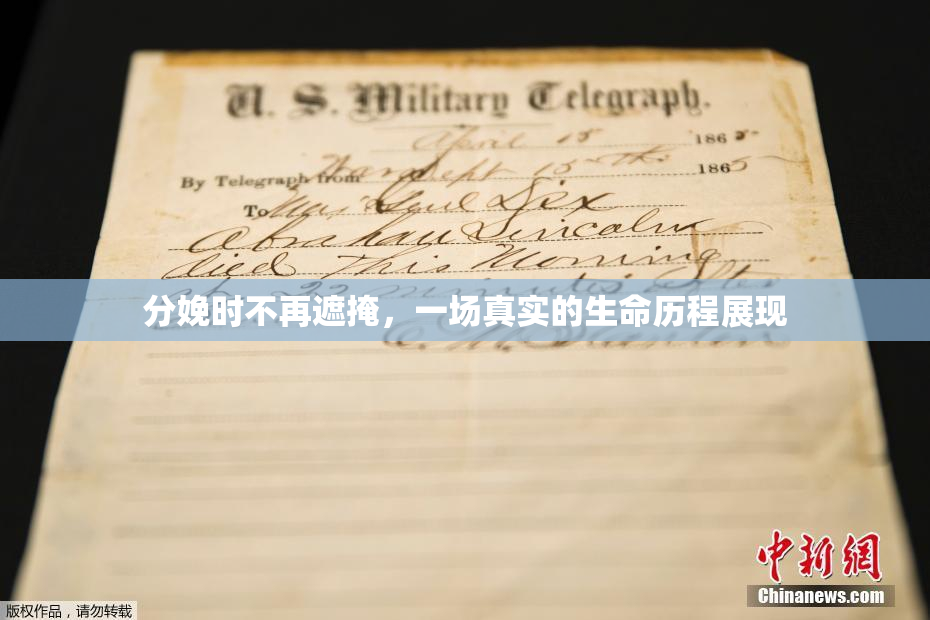 U. S. Military Telegraph.
April 15 1865
By Telegraph from War Dept 15th 1865
To Maj Genl Dix
Abraham Lincoln
died This Morning
at 22 minutes after
分娩时不再遮掩，一场真实的生命历程展现
E. M. Stanton
中新網
Chinanews.com
版权作品，请勿转载